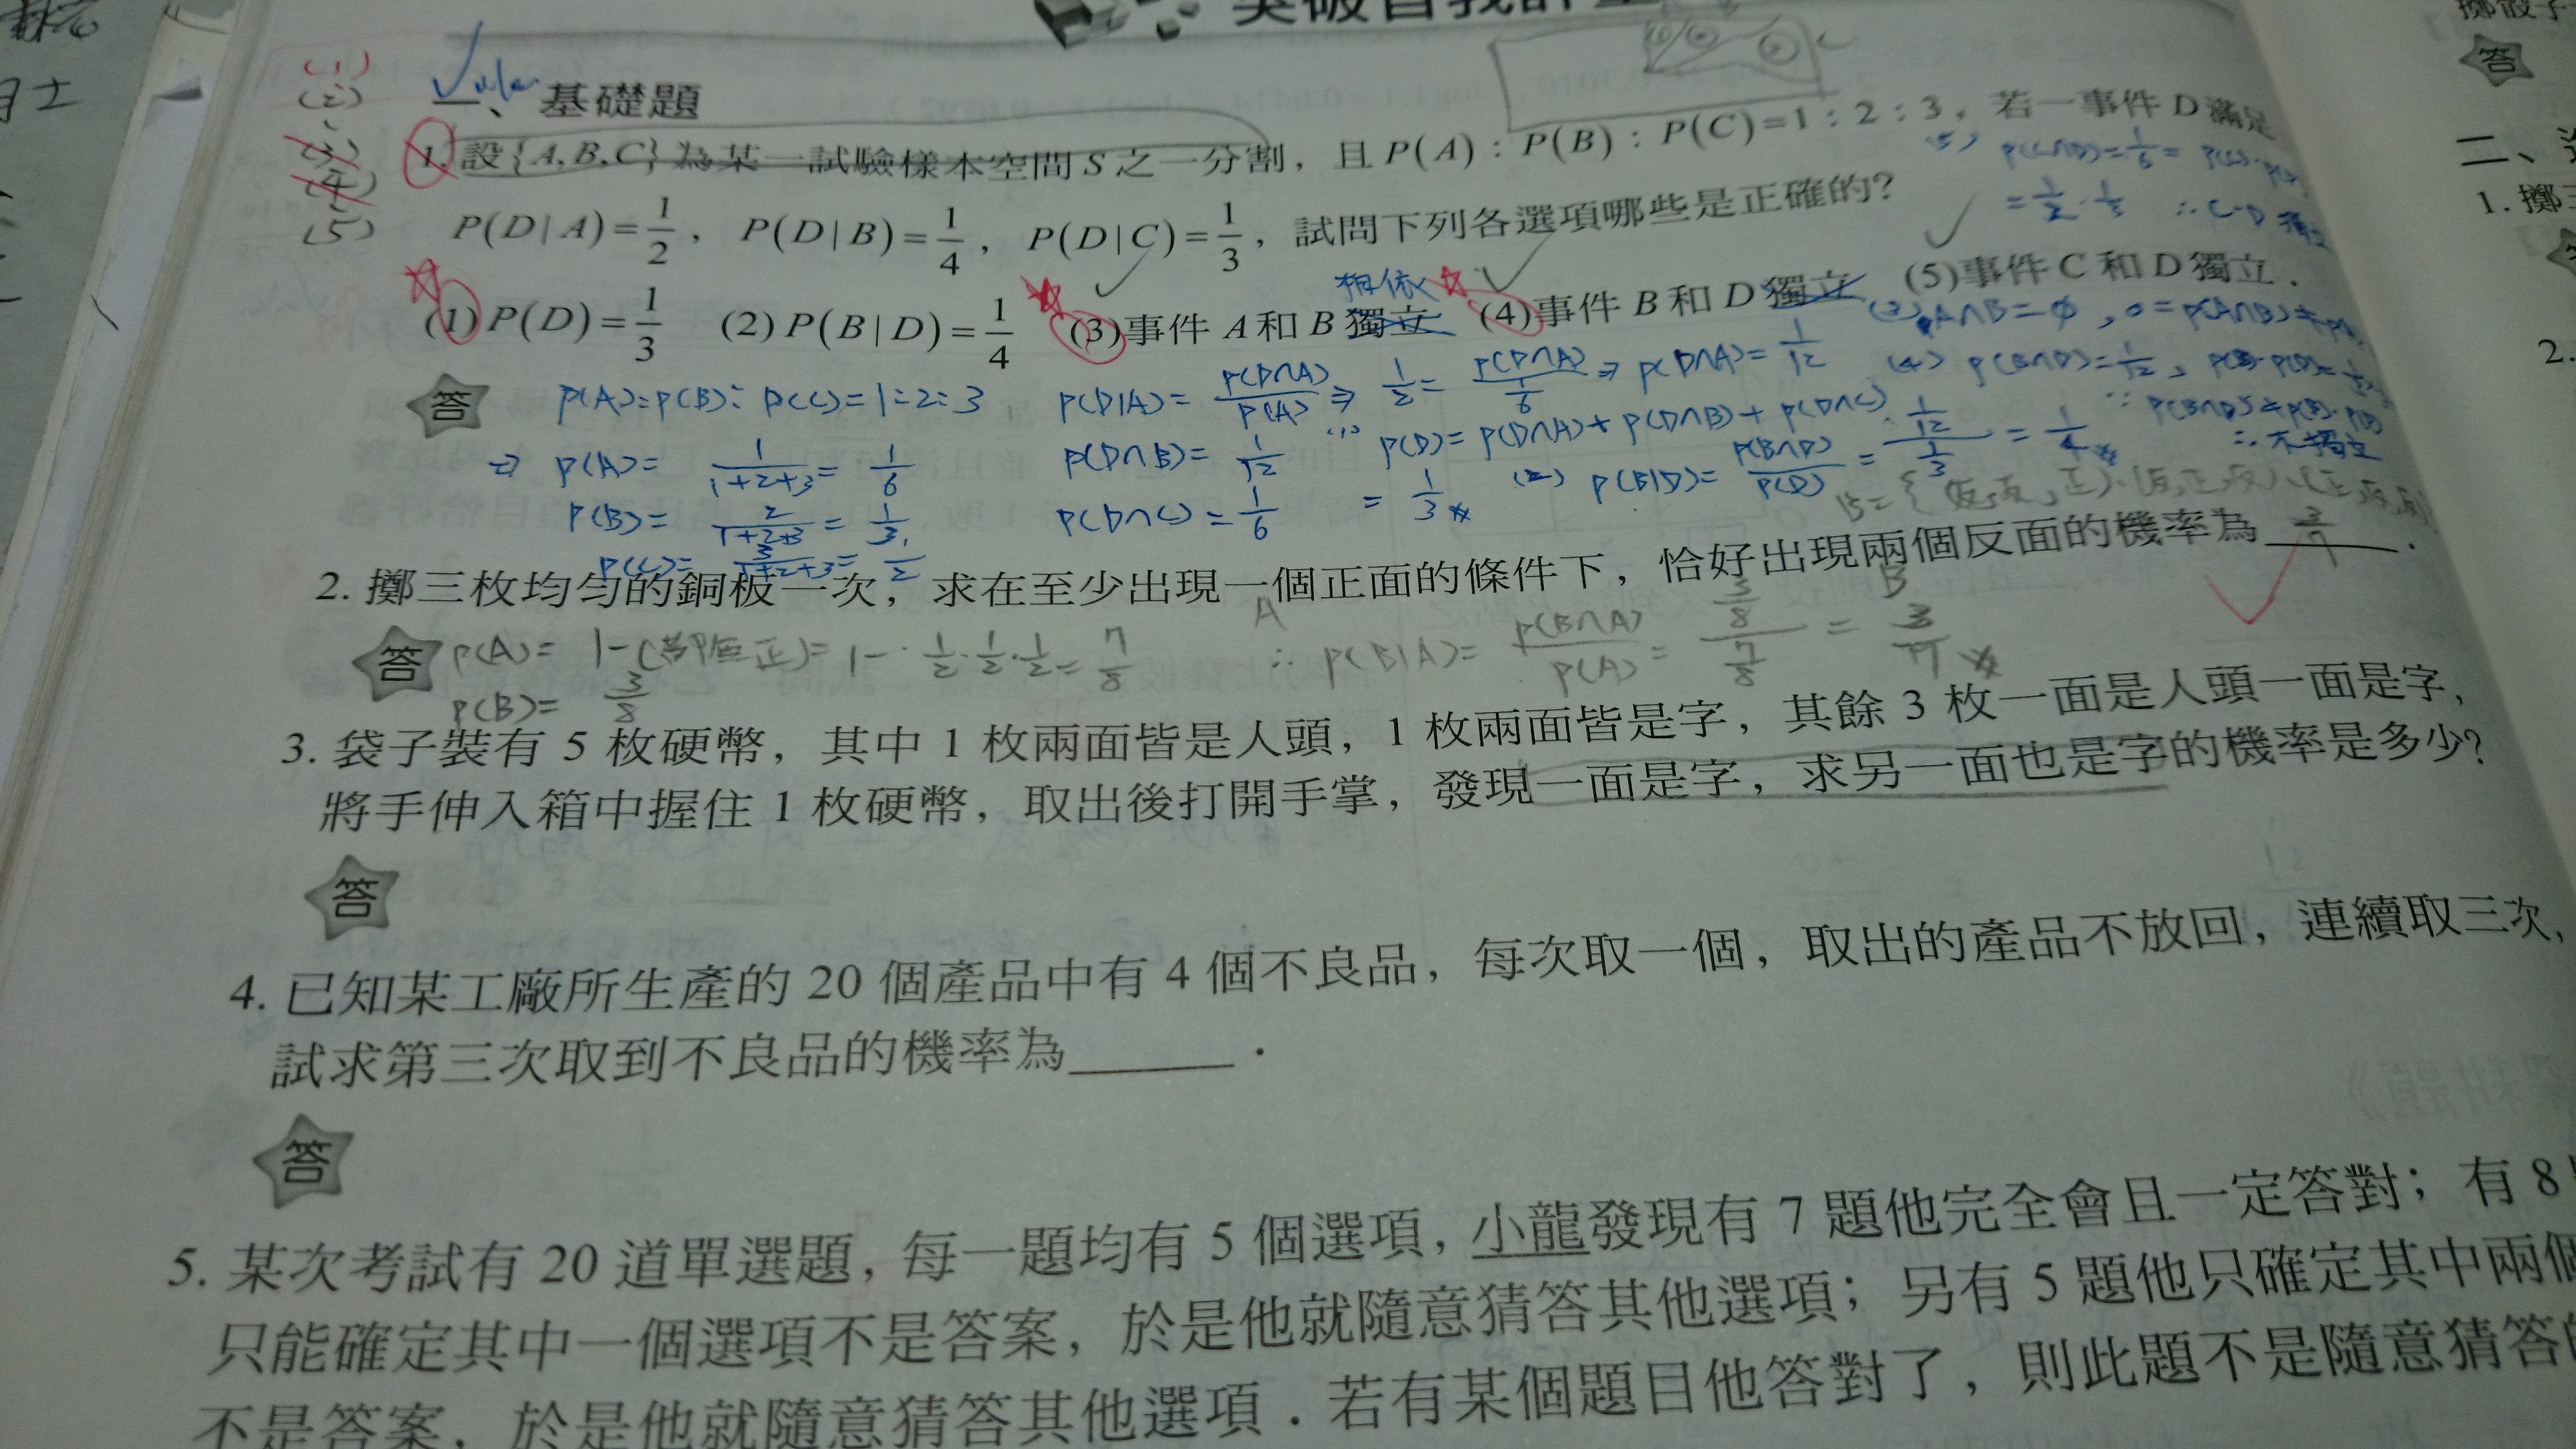 (1)
(2)
(3)
(4)
(5)
一、基礎題
1. 設{A, B, C}為某一試驗樣本空間S之一分割，且P(A)：P(B)：P(C)=1：2：3，若一事件D滿足
P(D|A)=1/2，P(D|B)=1/4，P(D|C)=1/3，試問下列各選項哪些是正確的？
(1)P(D)=1/3 (2)P(B|D)=1/4 (3)事件A和B獨立 (4)事件B和D獨立 (5)事件C和D獨立．
相依
答
P(A):P(B):P(C)=1:2:3
⇒ P(A)= 1/(1+2+3) = 1/6
P(B)= 2/(1+2+3) = 1/3
P(C)= 3/(1+2+3) = 1/2
P(D|A)= P(D∩A)/P(A) ⇒ 1/2 = P(D∩A)/(1/6) ⇒ P(D∩A)= 1/12
P(D∩B)= 1/12
P(D∩C)= 1/6
(1) P(D)=P(D∩A)+P(D∩B)+P(D∩C)
= 1/3
(2) P(B|D)= P(B∩D)/P(D) = (1/12)/(1/3) = 1/4
(3) A∩B=∅，0=P(A∩B)≠
(4) P(B∩D)=1/12，
∵ P(B∩D)≠P(B)·P(D)
∴不獨立
(5) P(C∩D)=1/6=P(C)·
=1/2·1/3 ∴C、D獨立
2. 擲三枚均勻的銅板一次，求在至少出現一個正面的條件下，恰好出現兩個反面的機率為 3/7 ．
A
B
B={(反,反,正)、(反,正,反)、(正,反,反)
答
P(A)= 1-( 無正)=1-1/2·1/2·1/2= 7/8
P(B)= 3/8
∴ P(B|A)= P(B∩A)/P(A) = (3/8)/(7/8) = 3/7
3. 袋子裝有 5 枚硬幣，其中 1 枚兩面皆是人頭，1 枚兩面皆是字，其餘 3 枚一面是人頭一面是字，
將手伸入箱中握住 1 枚硬幣，取出後打開手掌，發現一面是字，求另一面也是字的機率是多少？
答
4. 已知某工廠所生產的 20 個產品中有 4 個不良品，每次取一個，取出的產品不放回，連續取三次，
試求第三次取到不良品的機率為______．
答
5. 某次考試有 20 道單選題，每一題均有 5 個選項，小龍發現有 7 題他完全會且一定答對；有 8
只能確定其中一個選項不是答案，於是他就隨意猜答其他選項；另有 5 題他只確定其中兩個
不是答案，於是他就隨意猜答其他選項．若有某個題目他答對了，則此題不是隨意猜答的
答
二、
1. 擲
2.